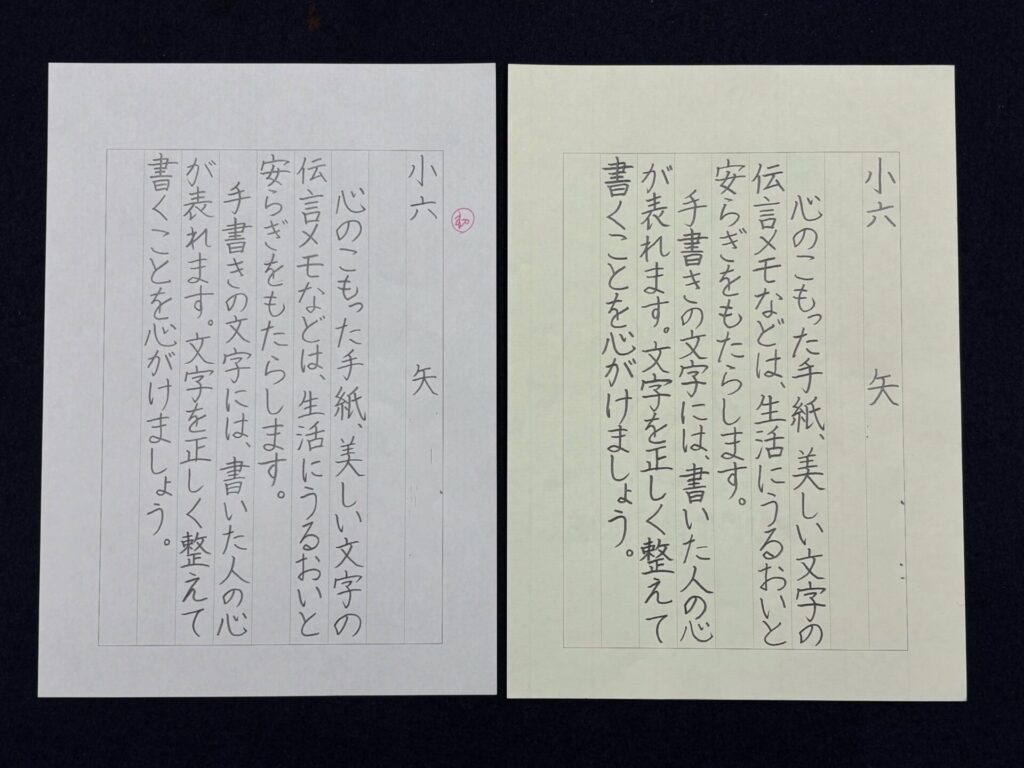 初
小六 矢
心のこもった手紙、美しい文字の
伝言メモなどは、生活にうるおいと
安らぎをもたらします。
手書きの文字には、書いた人の心
が表れます。文字を正しく整えて
書くことを心がけましょう。
小六 矢
心のこもった手紙、美しい文字の
伝言メモなどは、生活にうるおいと
安らぎをもたらします。
手書きの文字には、書いた人の心
が表れます。文字を正しく整えて
書くことを心がけましょう。